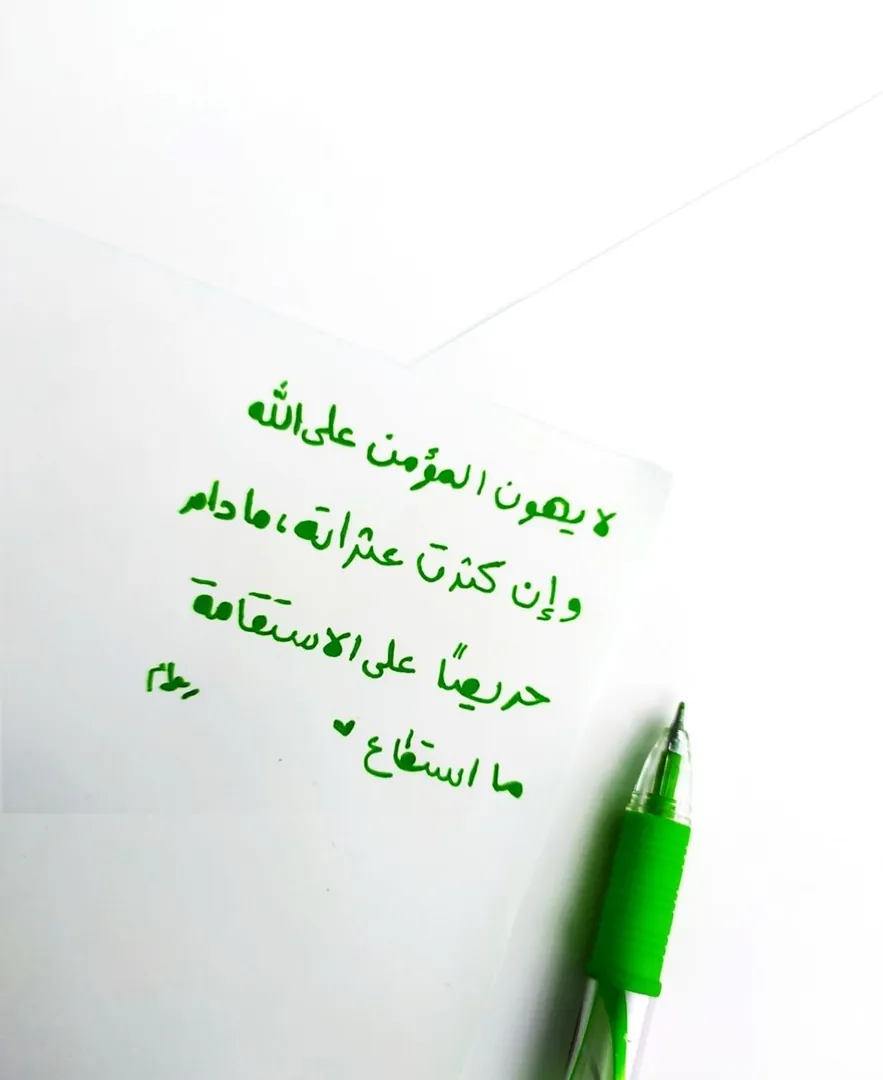 لا يهون المؤمن على الله
وإن كثرت عثراته، مادام
حريصًا على الاستقامة
ما استطاع ♥